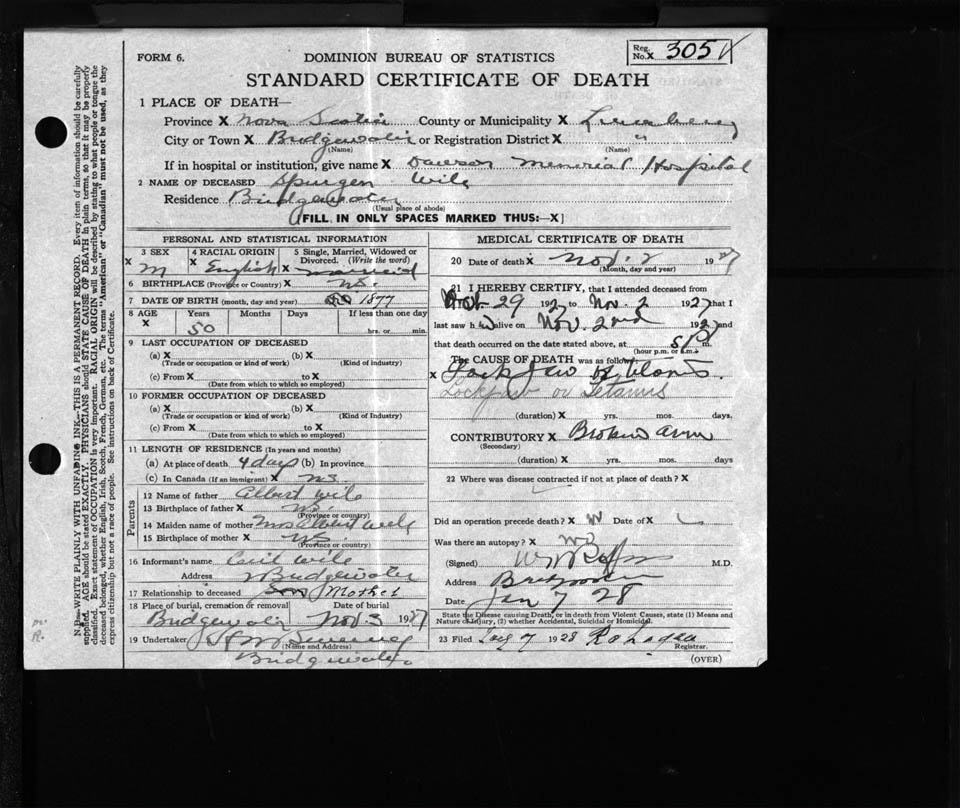 FORM 6.
DOMINION BUREAU OF STATISTICS
Reg. No. X 305
STANDARD CERTIFICATE OF DEATH
1 PLACE OF DEATH—
Province X Nova Scotia County or Municipality X Lunenburg
City or Town X Bridgewater or Registration District X "
(Name) (Name)
If in hospital or institution, give name X Dawson Memorial Hospital
2 NAME OF DECEASED Spurgen Wile
Residence Bridgewater
(Usual place of abode)
[FILL IN ONLY SPACES MARKED THUS:—X]
PERSONAL AND STATISTICAL INFORMATION
3 SEX 4 RACIAL ORIGIN 5 Single, Married, Widowed or Divorced. (Write the word)
X M X English X married
6 BIRTHPLACE (Province or Country) X N.S.
7 DATE OF BIRTH (month, day and year) 1877
8 AGE Years Months Days If less than one day
X 50 hrs. or min.
9 LAST OCCUPATION OF DECEASED
(a) X (b) X
(Trade or occupation or kind of work) (Kind of Industry)
(c) From X to X
(Date from which to which so employed)
10 FORMER OCCUPATION OF DECEASED
(a) X (b) X
(Trade or occupation or kind of work) (Kind of Industry)
(c) From X to X
(Date from which to which so employed)
11 LENGTH OF RESIDENCE (In years and months)
(a) At place of death 4 days (b) In province
(c) In Canada (If an immigrant) X N.S.
Parents
12 Name of father Albert Wile
13 Birthplace of father X N.S.
(Province or country)
14 Maiden name of mother Mrs Albert Wile
15 Birthplace of mother X N.S.
(Province or country)
16 Informant's name Wile
Address Bridgewater
17 Relationship to deceased Son Mother
18 Place of burial, cremation or removal Date of burial
Bridgewater Nov. 3 1927
19 Undertaker
(Name and Address)
Bridgewater
MEDICAL CERTIFICATE OF DEATH
20 Date of death X Nov. 2 1927
(Month, day and year)
21 I HEREBY CERTIFY, that I attended deceased from
Oct. 29 1927 to Nov. 2 1927 that I
last saw h alive on Nov. 2nd 1927 and
that death occurred on the date stated above, at 5 P m.
(hour p.m. or a.m.)
The CAUSE OF DEATH was as follows
X Lockjaw or Tetanus.
Lockjaw or Tetanus
(duration) X yrs. mos. days.
CONTRIBUTORY X Broken arm
(Secondary)
(duration) X yrs. mos. days
22 Where was disease contracted if not at place of death? X
Did an operation precede death? X Date of X
Was there an autopsy? X no
(Signed) M.D.
Address Bridgewater
Date Jan 7 28
State the Disease causing Death, or in death from Violent Causes, state (1) Means and Nature of Injury, (2) whether Accidental, Suicidal or Homicidal.
23 Filed 7 1928
Registrar.
(OVER)
N.B.—WRITE PLAINLY WITH UNFADING INK—THIS IS A PERMANENT RECORD. Every item of information should be carefully
supplied. AGE should be stated EXACTLY. PHYSICIANS should STATE CAUSE OF DEATH in plain terms, so that it may be properly
classified. Exact statement of OCCUPATION is very important. RACIAL ORIGIN will be described by stating to what people or tongue the
deceased belonged, whether English, Irish, Scotch, French, German, etc. The terms "American" or "Canadian" must not be used, as they
express citizenship but not a race of people. See instructions on back of Certificate.